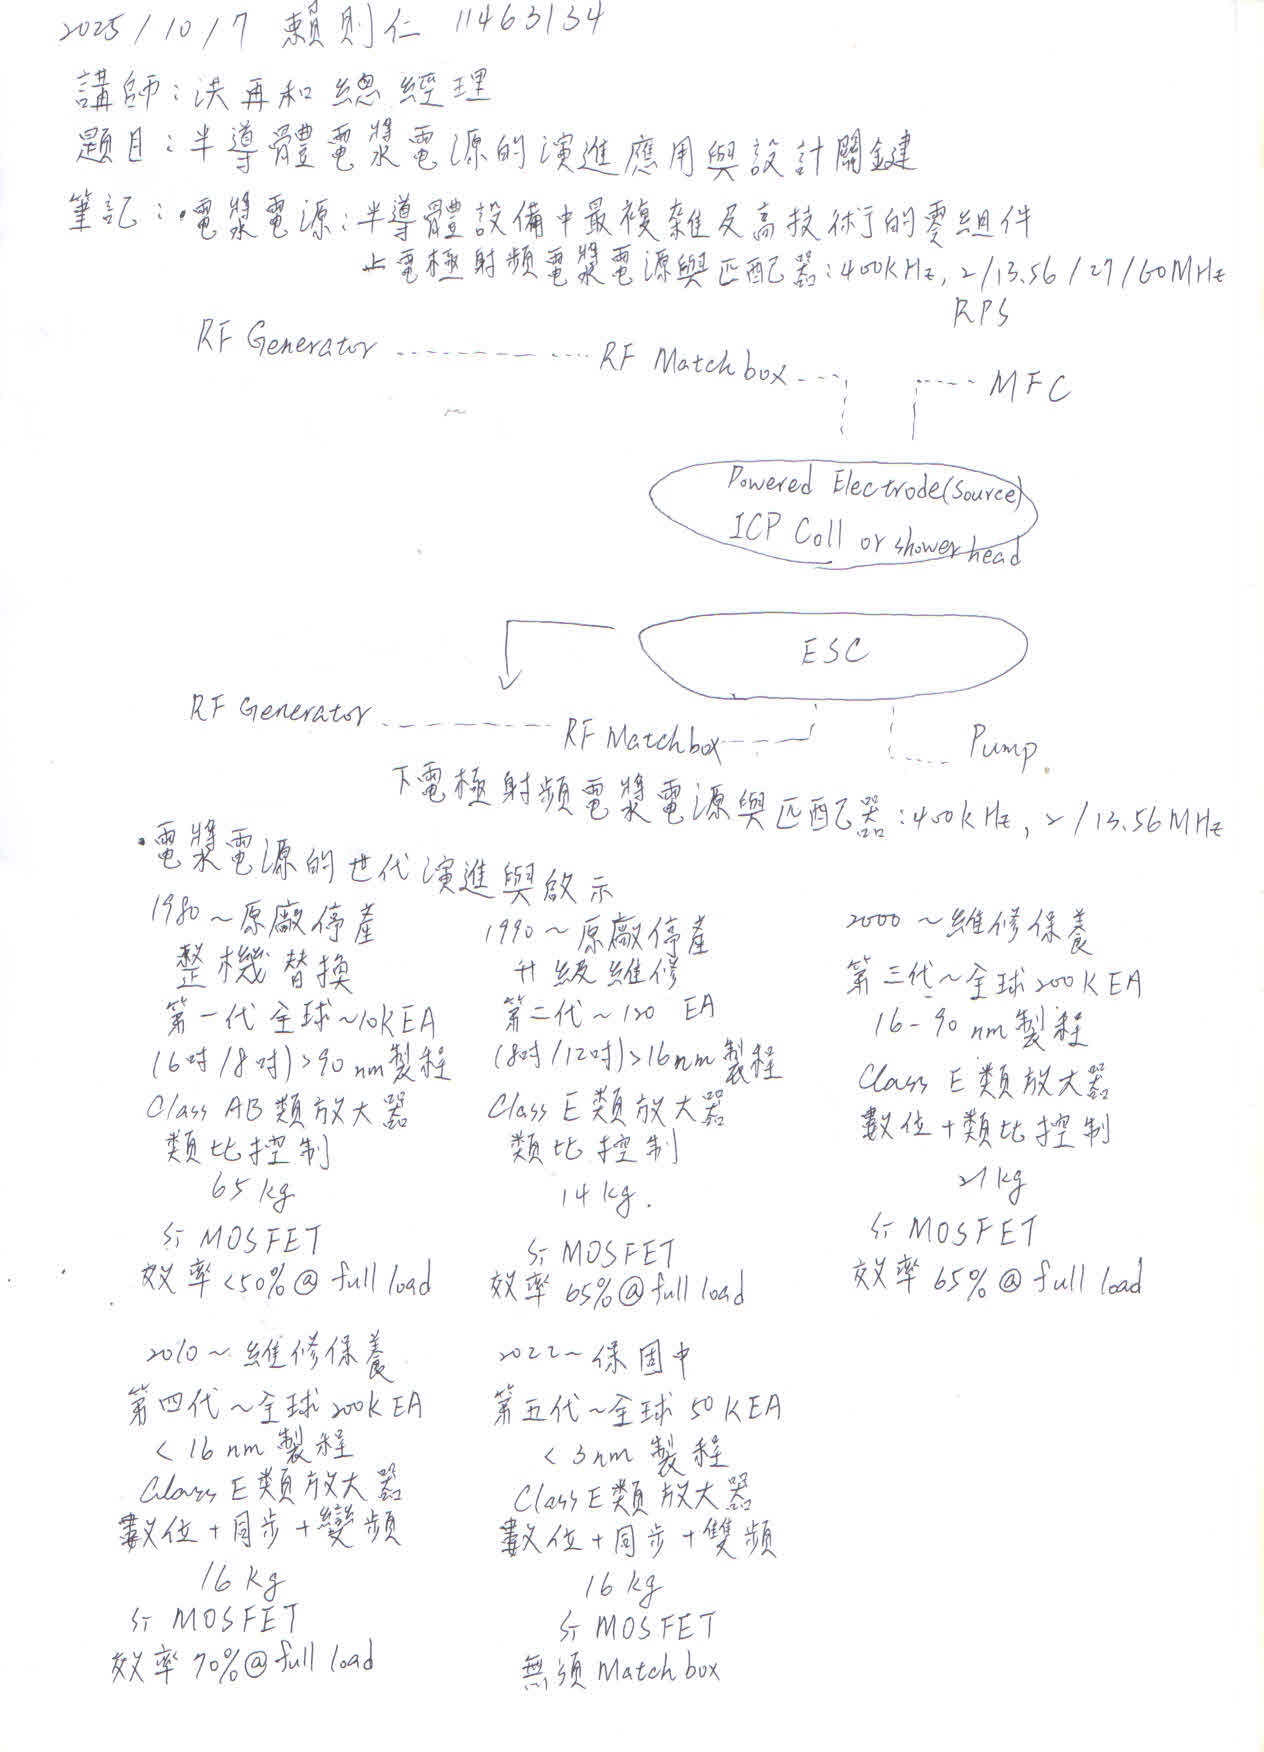 2025/10/7 賴則仁 11463134
講師:洪再和總經理
題目:半導體電漿電源的演進應用與設計關鍵
筆記:·電漿電源:半導體設備中最複雜及高技術的零組件
上電極射頻電漿電源與匹配器:400kHz, 2/13.56/27/60MHz
RPS
RF Generator
RF Matchbox
MFC
Powered Electrode(Source)
ICP Coll or shower head
ESC
RF Generator
RF Matchbox
Pump
下電極射頻電漿電源與匹配器:400kHz, 2/13.56MHz
·電漿電源的世代演進與啟示
1980~原廠停產
整機替換
第一代 全球~10KEA
(6吋/8吋)>90nm製程
Class AB類放大器
類比控制
65kg
Si MOSFET
效率<50%@full load
1990~原廠停產
升級維修
第二代~120 EA
(8吋/12吋)>16nm製程
Class E類放大器
類比控制
14kg.
Si MOSFET
效率65%@full load
2000~維修保養
第三代~全球200KEA
16-90nm製程
Class E類放大器
數位+類比控制
21kg
Si MOSFET
效率65%@full load
2010~維修保養
第四代~全球200KEA
<16nm製程
Class E類放大器
數位+同步+變頻
16kg
Si MOSFET
效率70%@full load
2022~保固中
第五代~全球50KEA
<3nm製程
Class E類放大器
數位+同步+雙頻
16kg
Si MOSFET
無須Matchbox